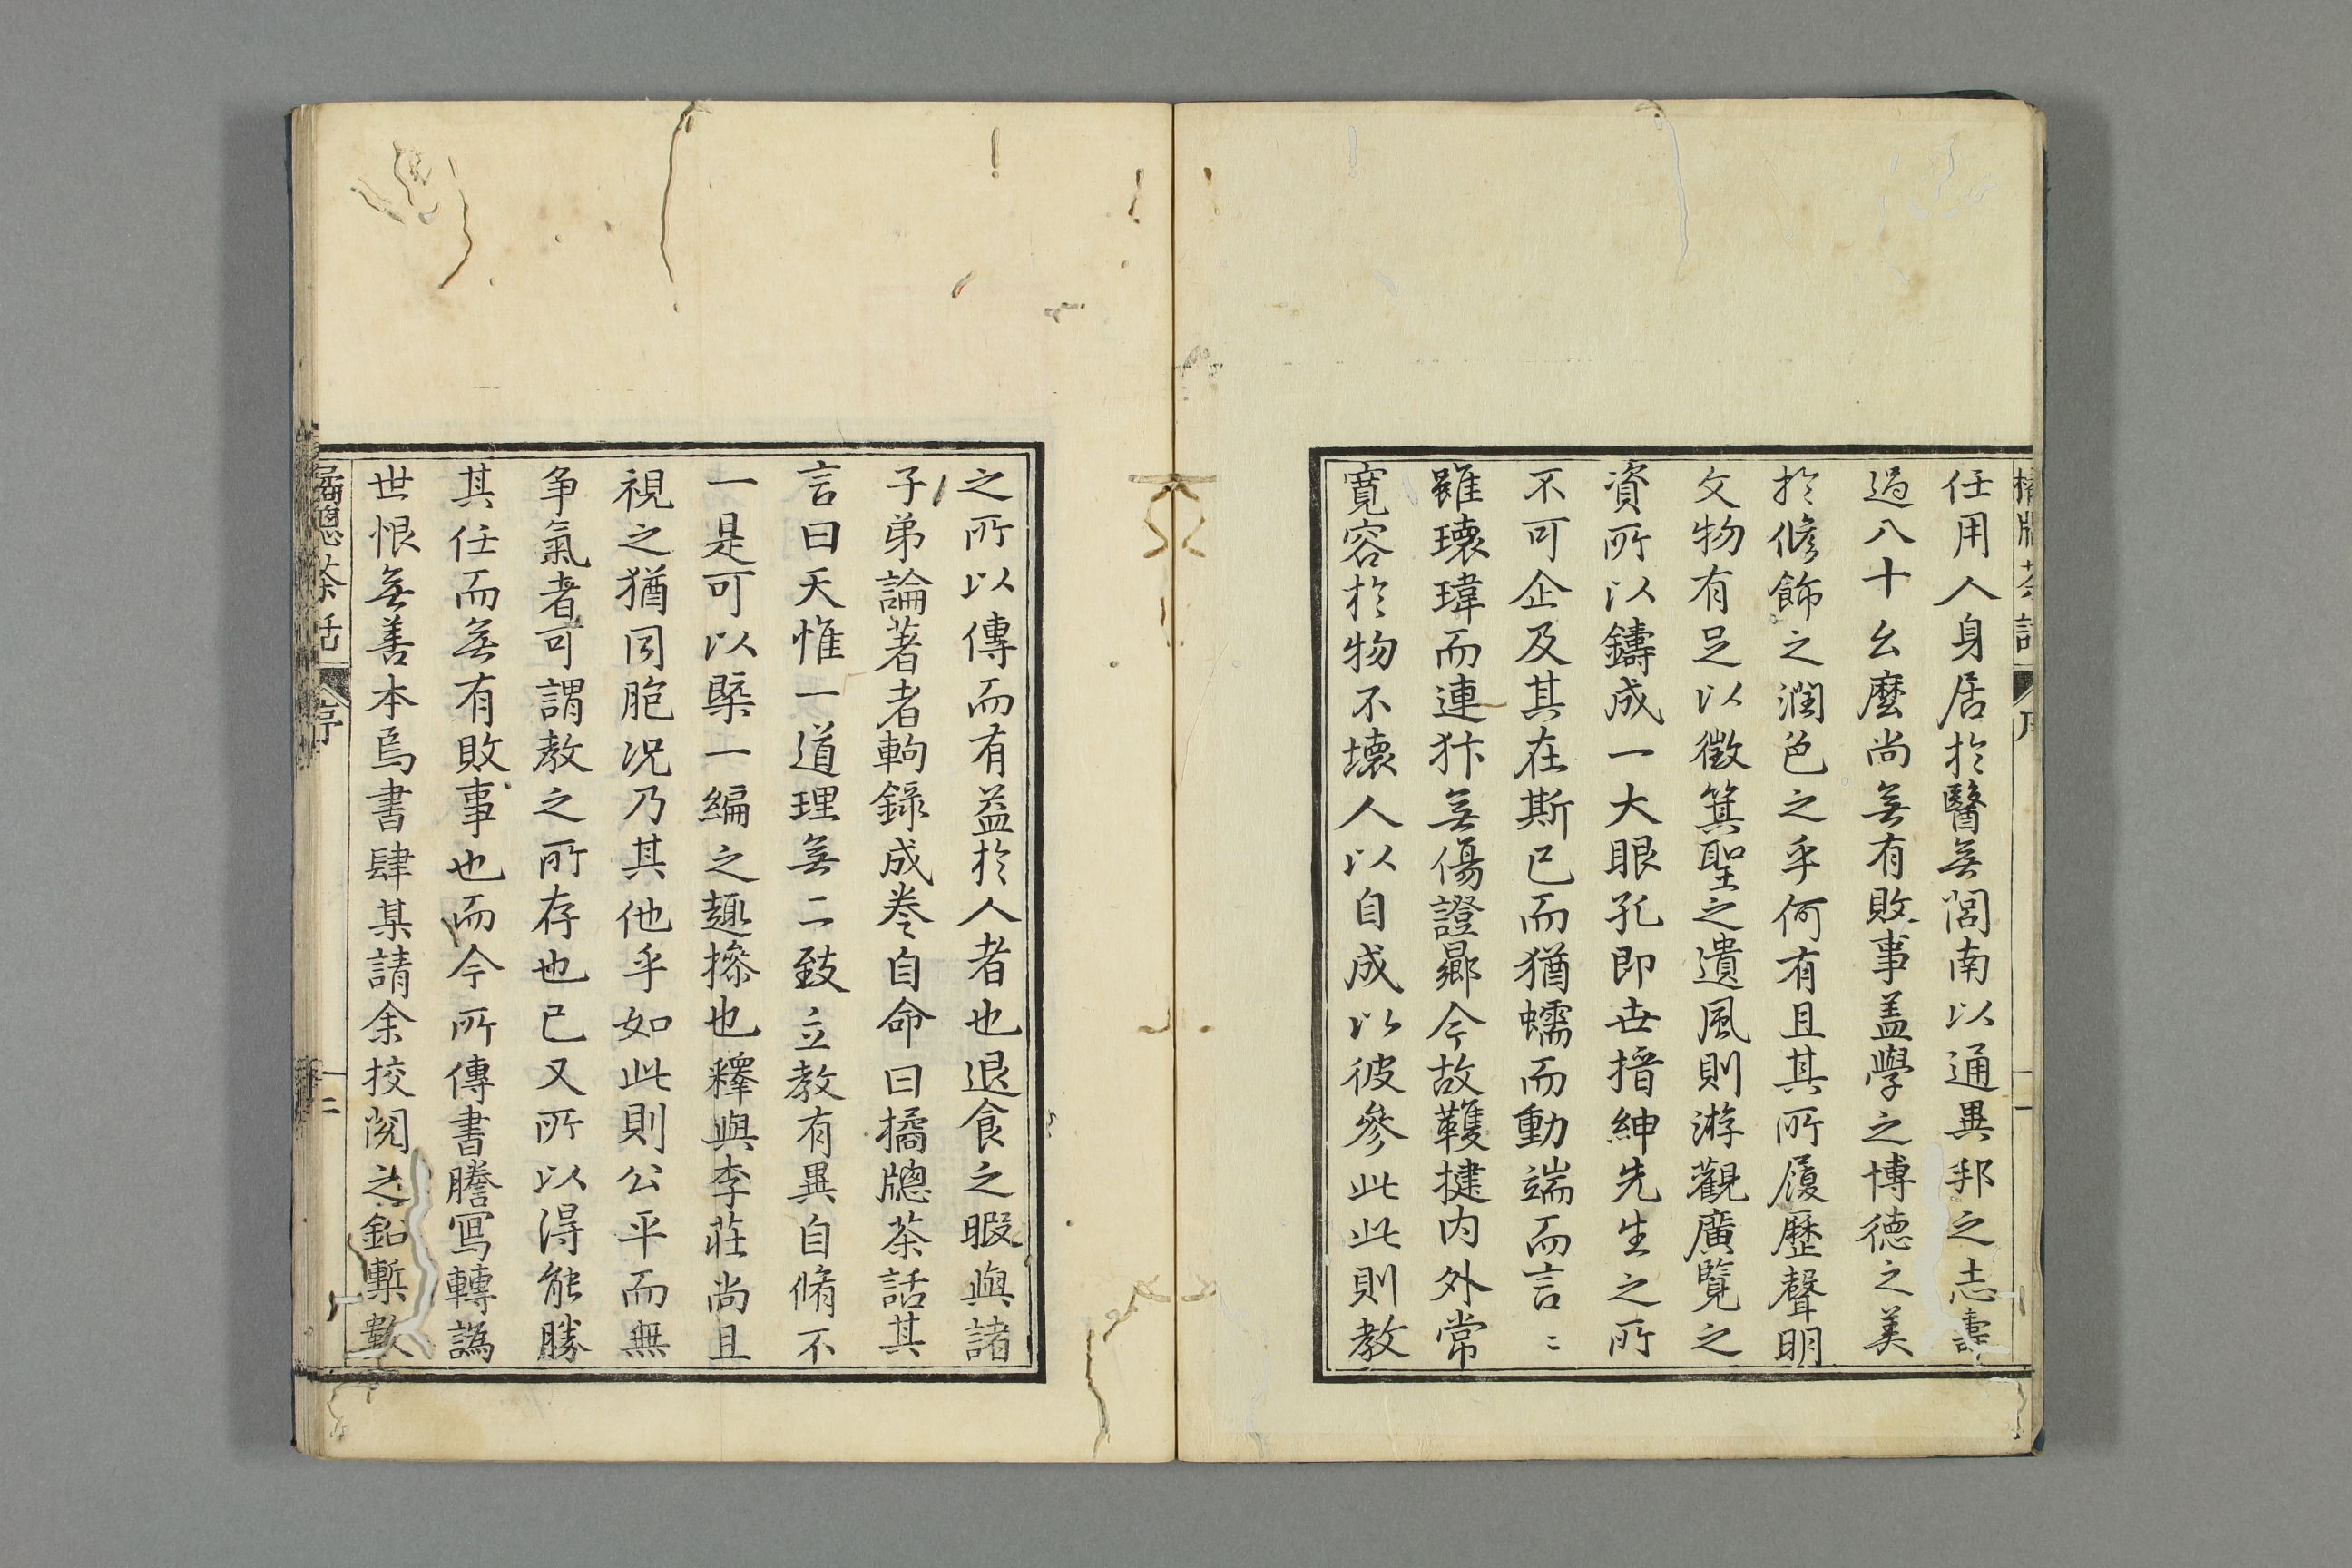 任用人身居於醫無閭南以通異邦之志壽
過八十幺麼尚無有敗事盖學之博德之美
於脩飾之潤色之乎何有且其所履歷聲明
文物有足以徵箕聖之遺風則游觀廣覽之
資所以鑄成一大眼孔即世搢紳先生之所
不可企及其在斯已而猶蠕而動端而言〻
雖瓌瑋而連犿無傷證曏今故韄揵内外常
寛容於物不壞人以自成以彼參此此則教
之所以傳而有益於人者也退食之暇與諸
子弟論著者軥錄成卷自命曰橘牕茶話其
言曰天惟一道理無二致立教有異自脩不
一是可以槩一編之趣摻也釋與李莊尚且
視之猶同胞况乃其他乎如此則公平而無
争氣者可謂教之所存也已又所以淂能勝
其任而無有敗事也而今所傳書謄寫轉譌
世恨無善本焉書肆某請余挍閱之鉛槧數
橘牕茶話 序 二